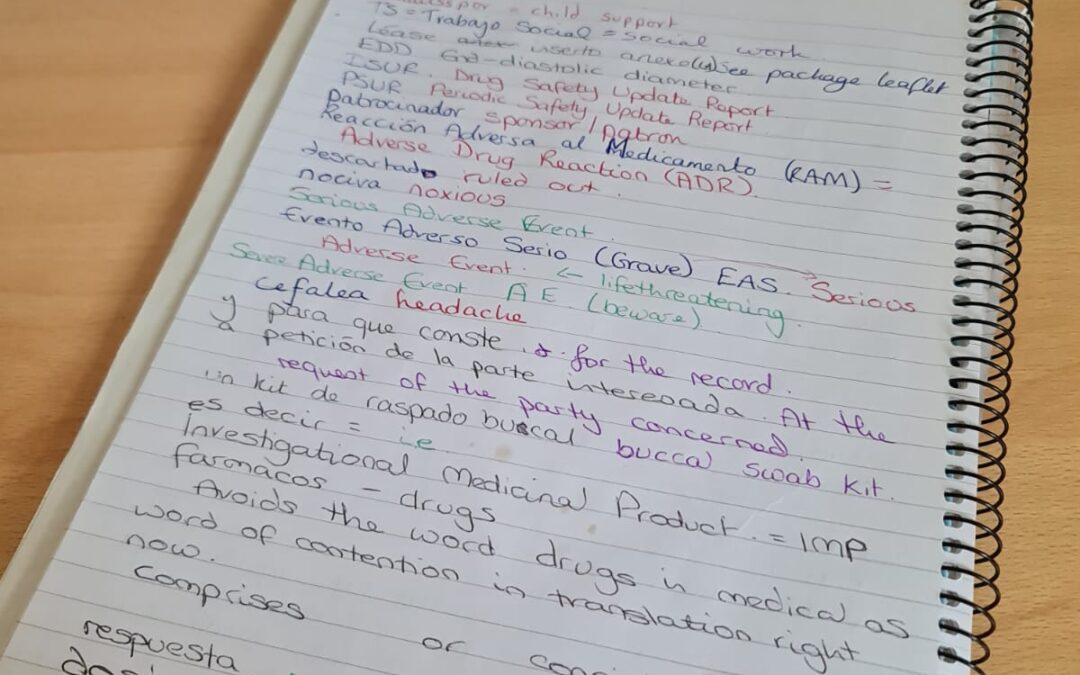 = child support
TS = Trabajo Social = social work
Lease inserto anexo(u) See package leaflet
EDD End-diastolic diameter
ISUR. Drug Safety Update Report
PSUR Periodic Safety Update Report
Patrocinador sponsor / patron
Reacción Adversa al Medicamento (RAM) =
Adverse Drug Reaction (ADR).
descartado ruled out.
nociva noxious
Serious Adverse Event
Evento Adverso Serio (Grave) EAS. Serious
Adverse Event. ← lifethreatening.
Severe Adverse Event AE (beware)
Cefalea headache
y para que conste for the record.
a petición de la parte interesada. At the
request of the party concerned.
un kit de raspado buccal buccal swab kit.
es decir = i.e
Investigational Medicinal Product. = IMP
farmacos - drugs
Avoids the word drugs in medical as
word of contention in translation right
now.
Comprises or
respuesta